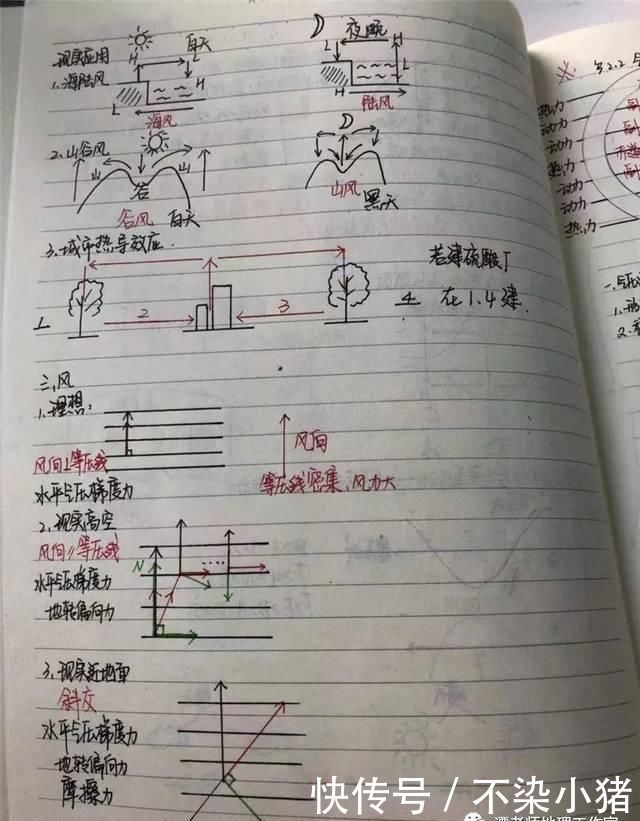 现实应用
白天
夜晚
H L
L H
H L
L H
1.海陆风
海风
陆风
2.山谷风
山 山
谷
谷风 白天
山风 黑天
3.城市热导效应
若建硫酸厂
1 2 3 4 在1.4建
三.风
1.理想:
风向⊥等压线
水平气压梯度力
风向
等压线密集,风力大
2.现实高空
风向//等压线
水平气压梯度力
N
地转偏向力
3.现实近地面
斜交
水平气压梯度力
地转偏向力
摩擦力
热力
动力
动力
热力
动力
动力
热力
快传号 / 不染小猪